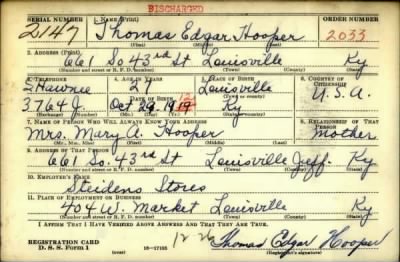 DISCHARGED
SERIAL NUMBER 1. NAME (Print) ORDER NUMBER
2147 Thomas Edgar Hooper 2033
(First) (Middle) (Last)
2. ADDRESS (Print)
661 So 43rd St Louisville Ky
(Number and street or R. F. D. number) (Town) (County) (State)
3. TELEPHONE 4. AGE IN YEARS 5. PLACE OF BIRTH 6. COUNTRY OF CITIZENSHIP
Shawnee 27 Louisville
DATE OF BIRTH (Town or county)
3764J Oct 29 1912 Ky U.S.A.
(Exchange) (Number) (Mo.) (Day) (Yr.) (State or country)
7. NAME OF PERSON WHO WILL ALWAYS KNOW YOUR ADDRESS 8. RELATIONSHIP OF THAT PERSON
Mrs. Mary A. Hooper Mother
(Mr., Mrs., Miss) (First) (Middle) (Last)
9. ADDRESS OF THAT PERSON
661 So. 43rd St Louisville Jeff. Ky
(Number and street or R. F. D. number) (Town) (County) (State)
10. EMPLOYER'S NAME
Steidens Stores
11. PLACE OF EMPLOYMENT OR BUSINESS
404 W. Market Louisville Ky
(Number and street or R. F. D. number) (Town) (County) (State)
I AFFIRM THAT I HAVE VERIFIED ABOVE ANSWERS AND THAT THEY ARE TRUE.
REGISTRATION CARD
D. S. S. Form 1 (over) 16-17105 Thomas Edgar Hooper
(Registrant's signature)